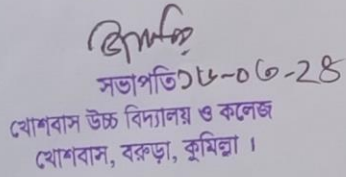 সভাপতি ১৮-০৩-২৪
খোশবাস উচ্চ বিদ্যালয় ও কলেজ
খোশবাস, বরুড়া, কুমিল্লা ।